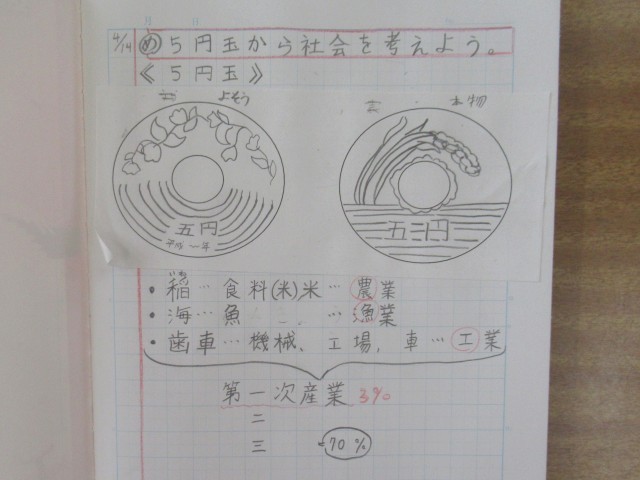 月 日
4/14 め 5円玉から社会を考えよう。
《5円玉》
よそう
本物
五円
平成〜年
五円
いね
・稲…食料(米)米…農業
・海…魚 …漁業
・歯車…機械、工場、車…工業
第一次産業 3%
二
三 70%